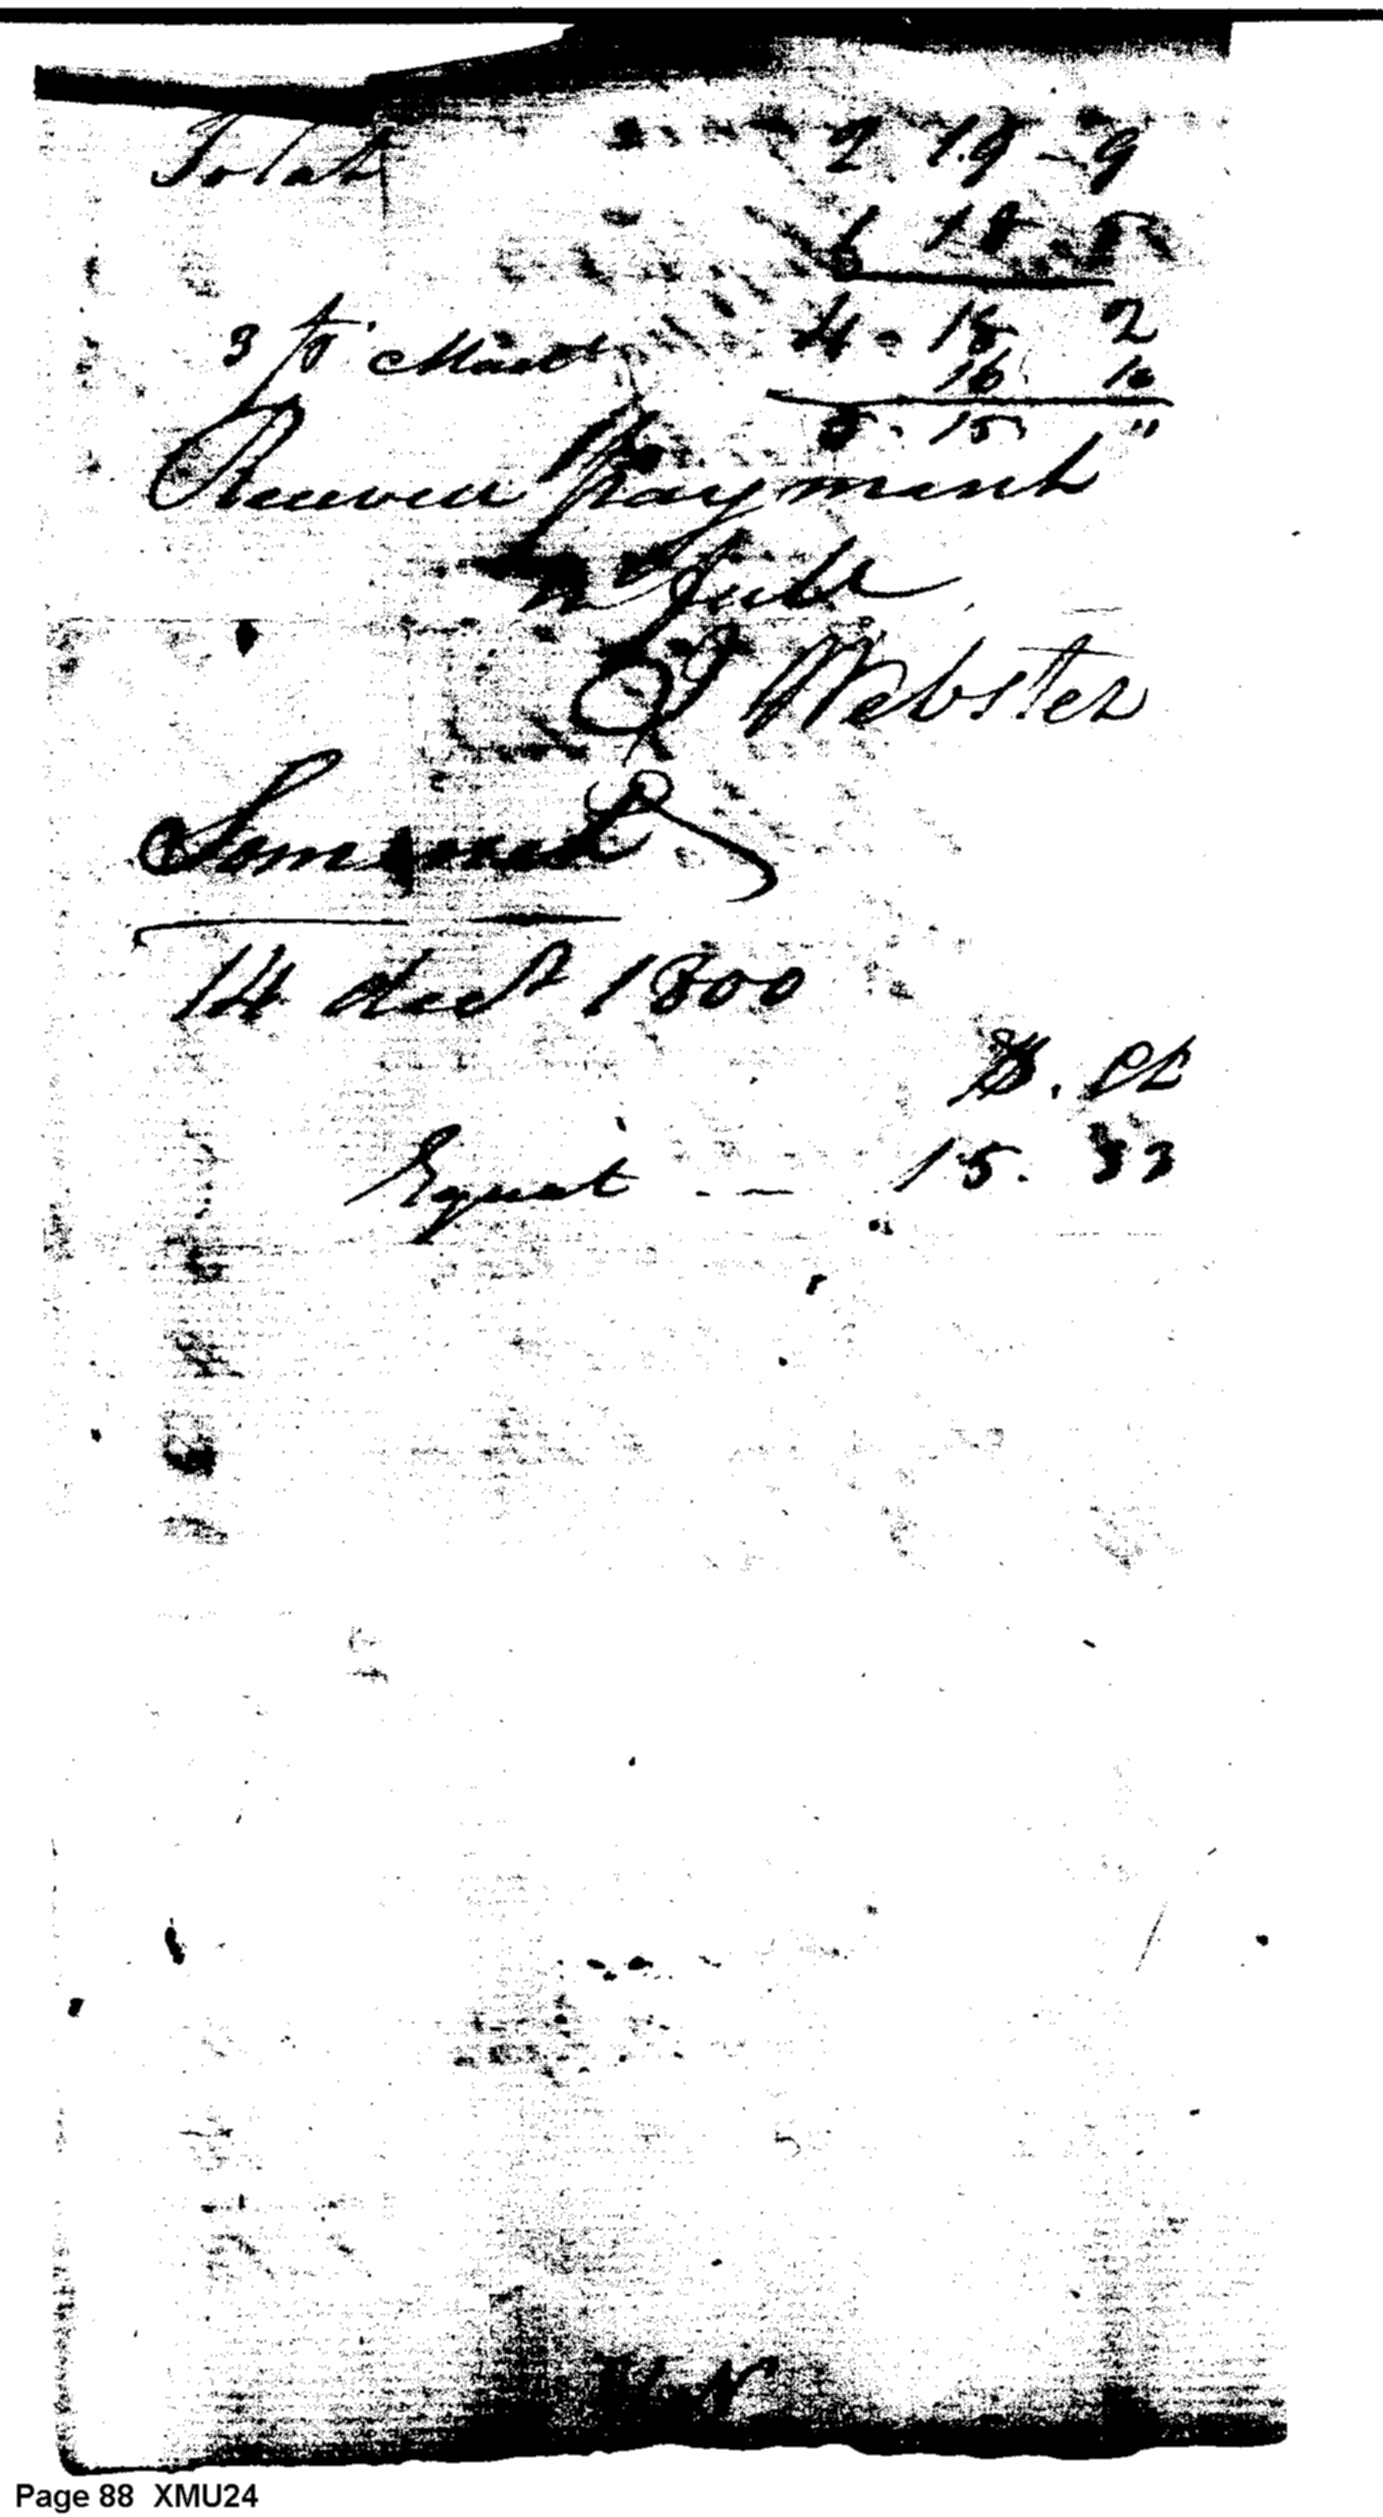 Total 2 19 - 9
1 18 . 5
4 - 18 2
3 pr 16 10
5 . 15 "
Received payment
in full
J Webster
14 dect 1800
D . Ct
Equal - - 15 . 33
Page 88 XMU24